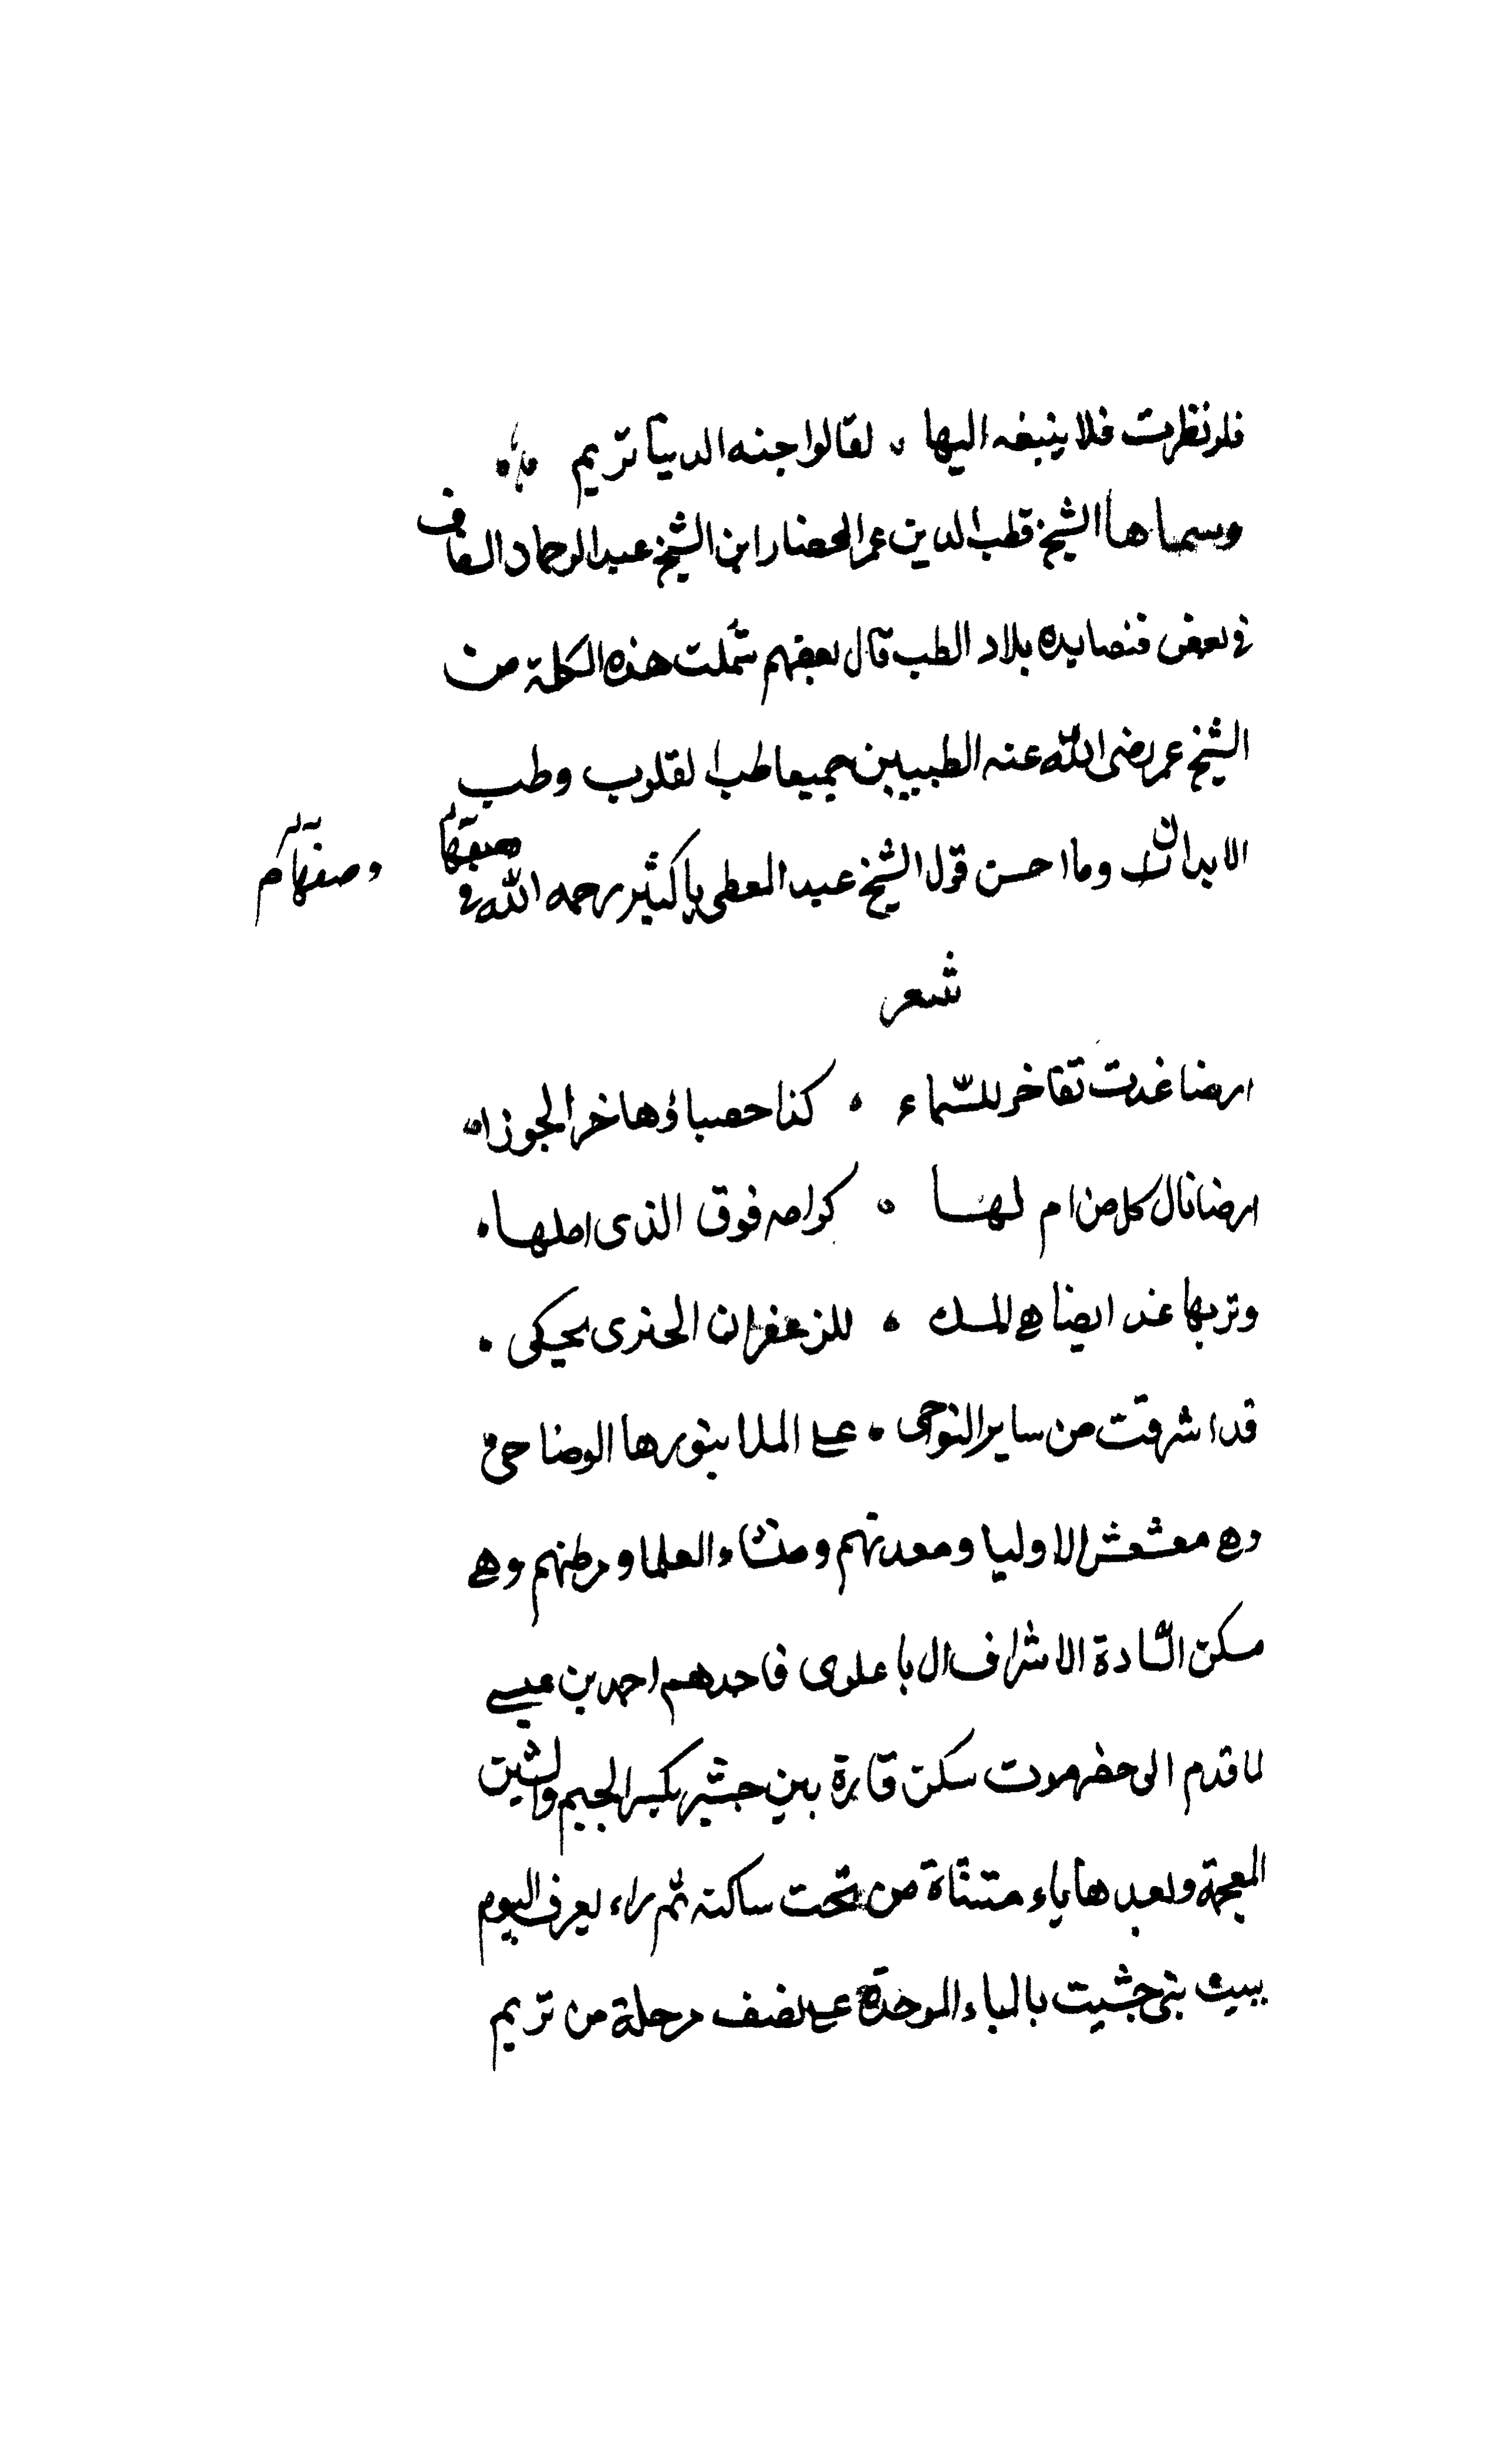 فلو نظرت فلاسفه اليها لقالوا جنه الدنيا تريم
وسماها الشيخ قطب الدين عمر المحضار ابن الشيخ عبد الرحمان السقاف
في بعض قصايده بلاد الطب قال بعضهم شملت هذه الكلمة من
الشيخ عمر رضى الله عنه الطبيبين جميعا طب القلوب وطب
الابدان وما احسن قول الشيخ عبد المعطى باكثير رحمه الله في
وصفها
شعر
ارضا غدت تفاخر للسّماء كذا حصباؤها فخر الجوزاء
ارضا نال كل من ام لها كرامه فوق الذى املها
وتربها غدا ايضا هى المسك للزعفران الجنرى يحكى
قد اشرقت من ساير النواحى على الملا بنورها الوضاحى
وهى معشعش الاوليا ومعدنهم ومنشاء العلما وموطنهم وهى
مسكن السّادة الاشراف ال باعلوى فاحدهم احمد بن عيسى
لما قدم الى حضرموت سكن قارة بين جشير بكسر الجيم والشين
المعجمة وبعدها ياء مثناة من تحت ساكنه ثم راء يعرف اليوم
ببيت بنى جشيت بالباء الموحدة على نصف مرحلة من تريم